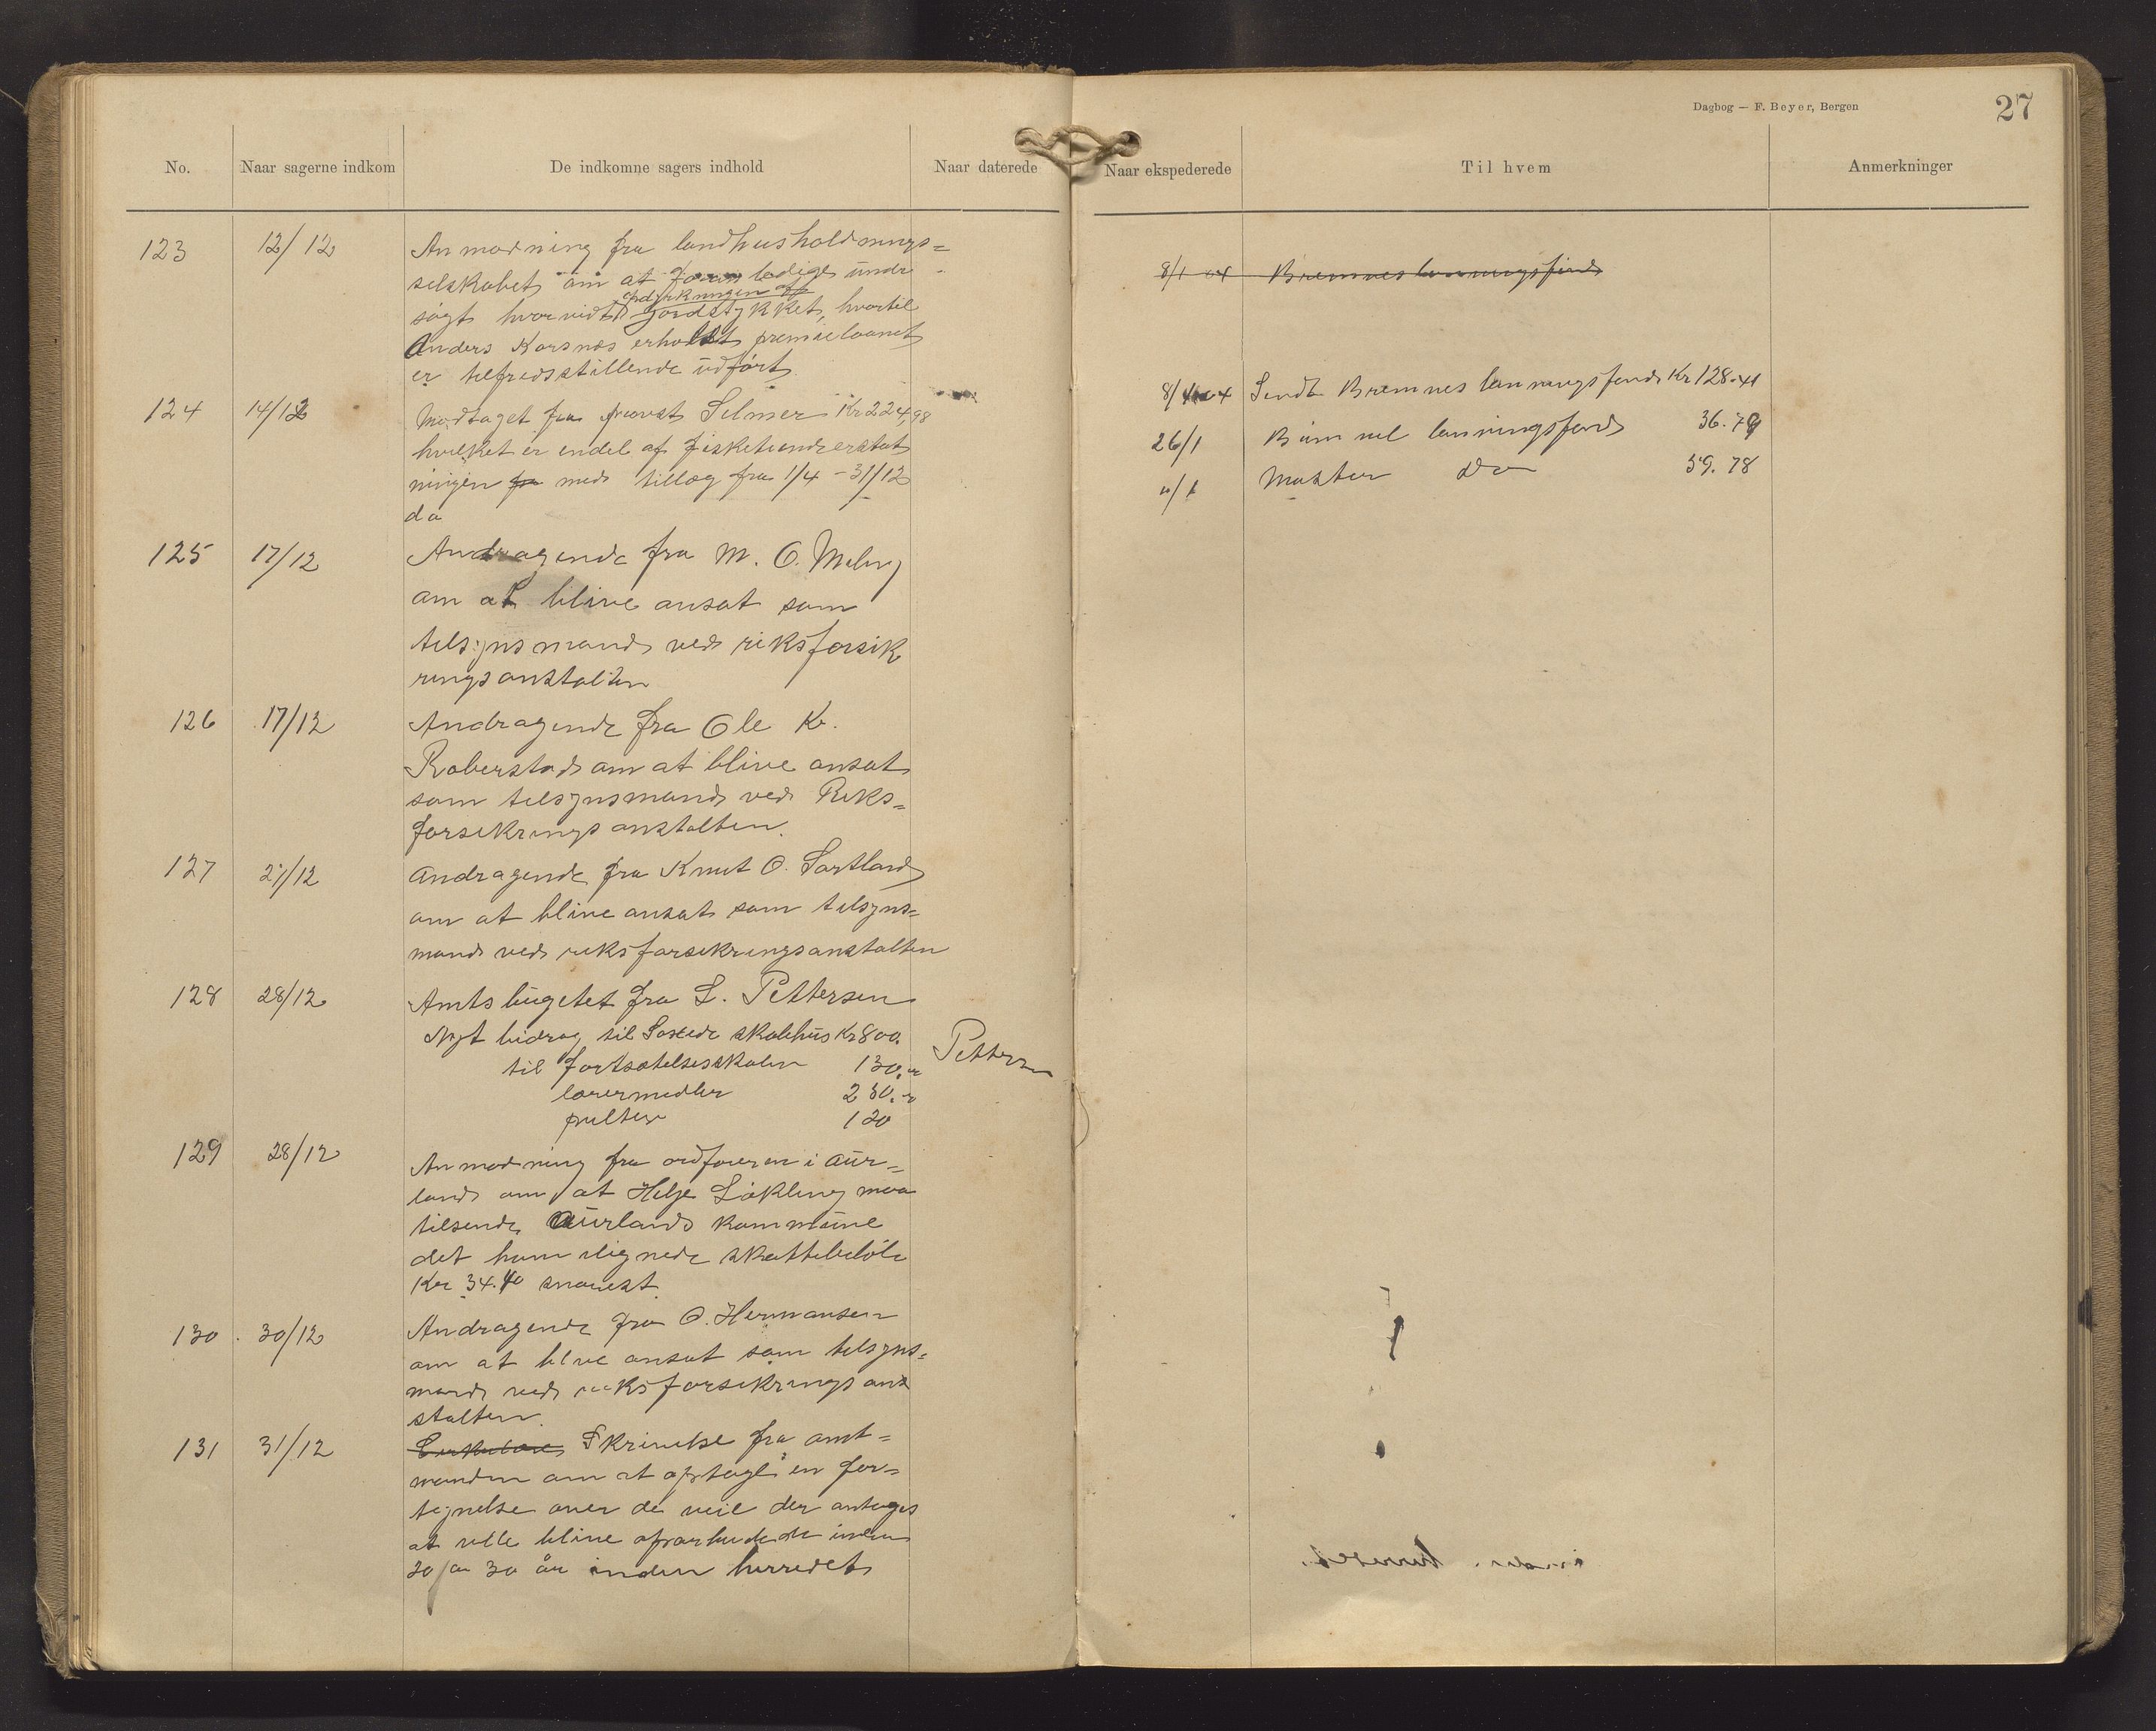 Dagbog — F. Beyer, Bergen
27
No. Naar sagerne indkom De indkomne sagers indhold Naar daterede Naar ekspederede Til hvem Anmerkninger
123 12/12 Anmodning fra landhusholdnings=
selskabet om at faa ledige undr
opdyrkningen af
søgt hvorvidt jordstykket, hvortil
Anders Korsnes erholdt premielaanet
er tilfredsstillende udført
8/1 04 Bremnes lønningsfond
124 14/12 Modtaget fra provst Selmer Kr 224,98
hvilket er endel af fisketiendeerstat
ningen fra med tillæg fra 1/4 - 31/12
da
8/1 04 Sendt Bremnes lønningsfond Kr 128.41
26/1 Bømmel lønningsfond 36.79
"/1 Moster Do 59.78
125 17/12 Andragende fra M. O. Meling
om at blive ansat som
tilsynsmand ved riksforsik
ringsanstalten
126 17/12 Andragende fra Ole K.
Roberstad om at blive ansat
som tilsynsmand ved Riks=
forsikringsanstalten.
127 21/12 Andragende fra Knut O. Sortland
om at blive ansat som tilsyns=
mand ved riksforsikringsanstalten
128 28/12 Amtsbugetet fra L. Pettersen
Nyt bidrag til skolehus Kr 800.
Pettersen
til fortsættelsesskolen 130.
læremidler 230.
pulter 120
129 28/12 Anmodning fra ordføreren i Aur=
land om at Helje Løkling maa
tilsende Aurlands kommune
det ham ilignede skattebeløb
Kr 34.40 snarest.
130 30/12 Andragende fra O. Hermansen
om at blive ansat som tilsyns=
mand ved riksforsikringsans
stalten.
131 31/12 Cirkulære Skrivelse fra amt=
manden om at optage en for=
tegnelse over de veie der antages
at ville blive oparbeidede inden
20 a 30 år inden herredet